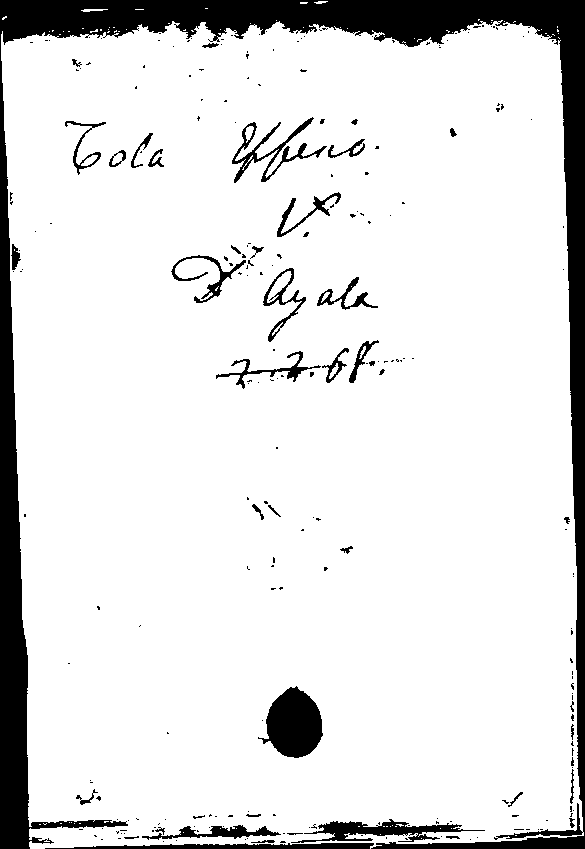 Tola Effisio.
V.
D' Ayala
7.7.68.